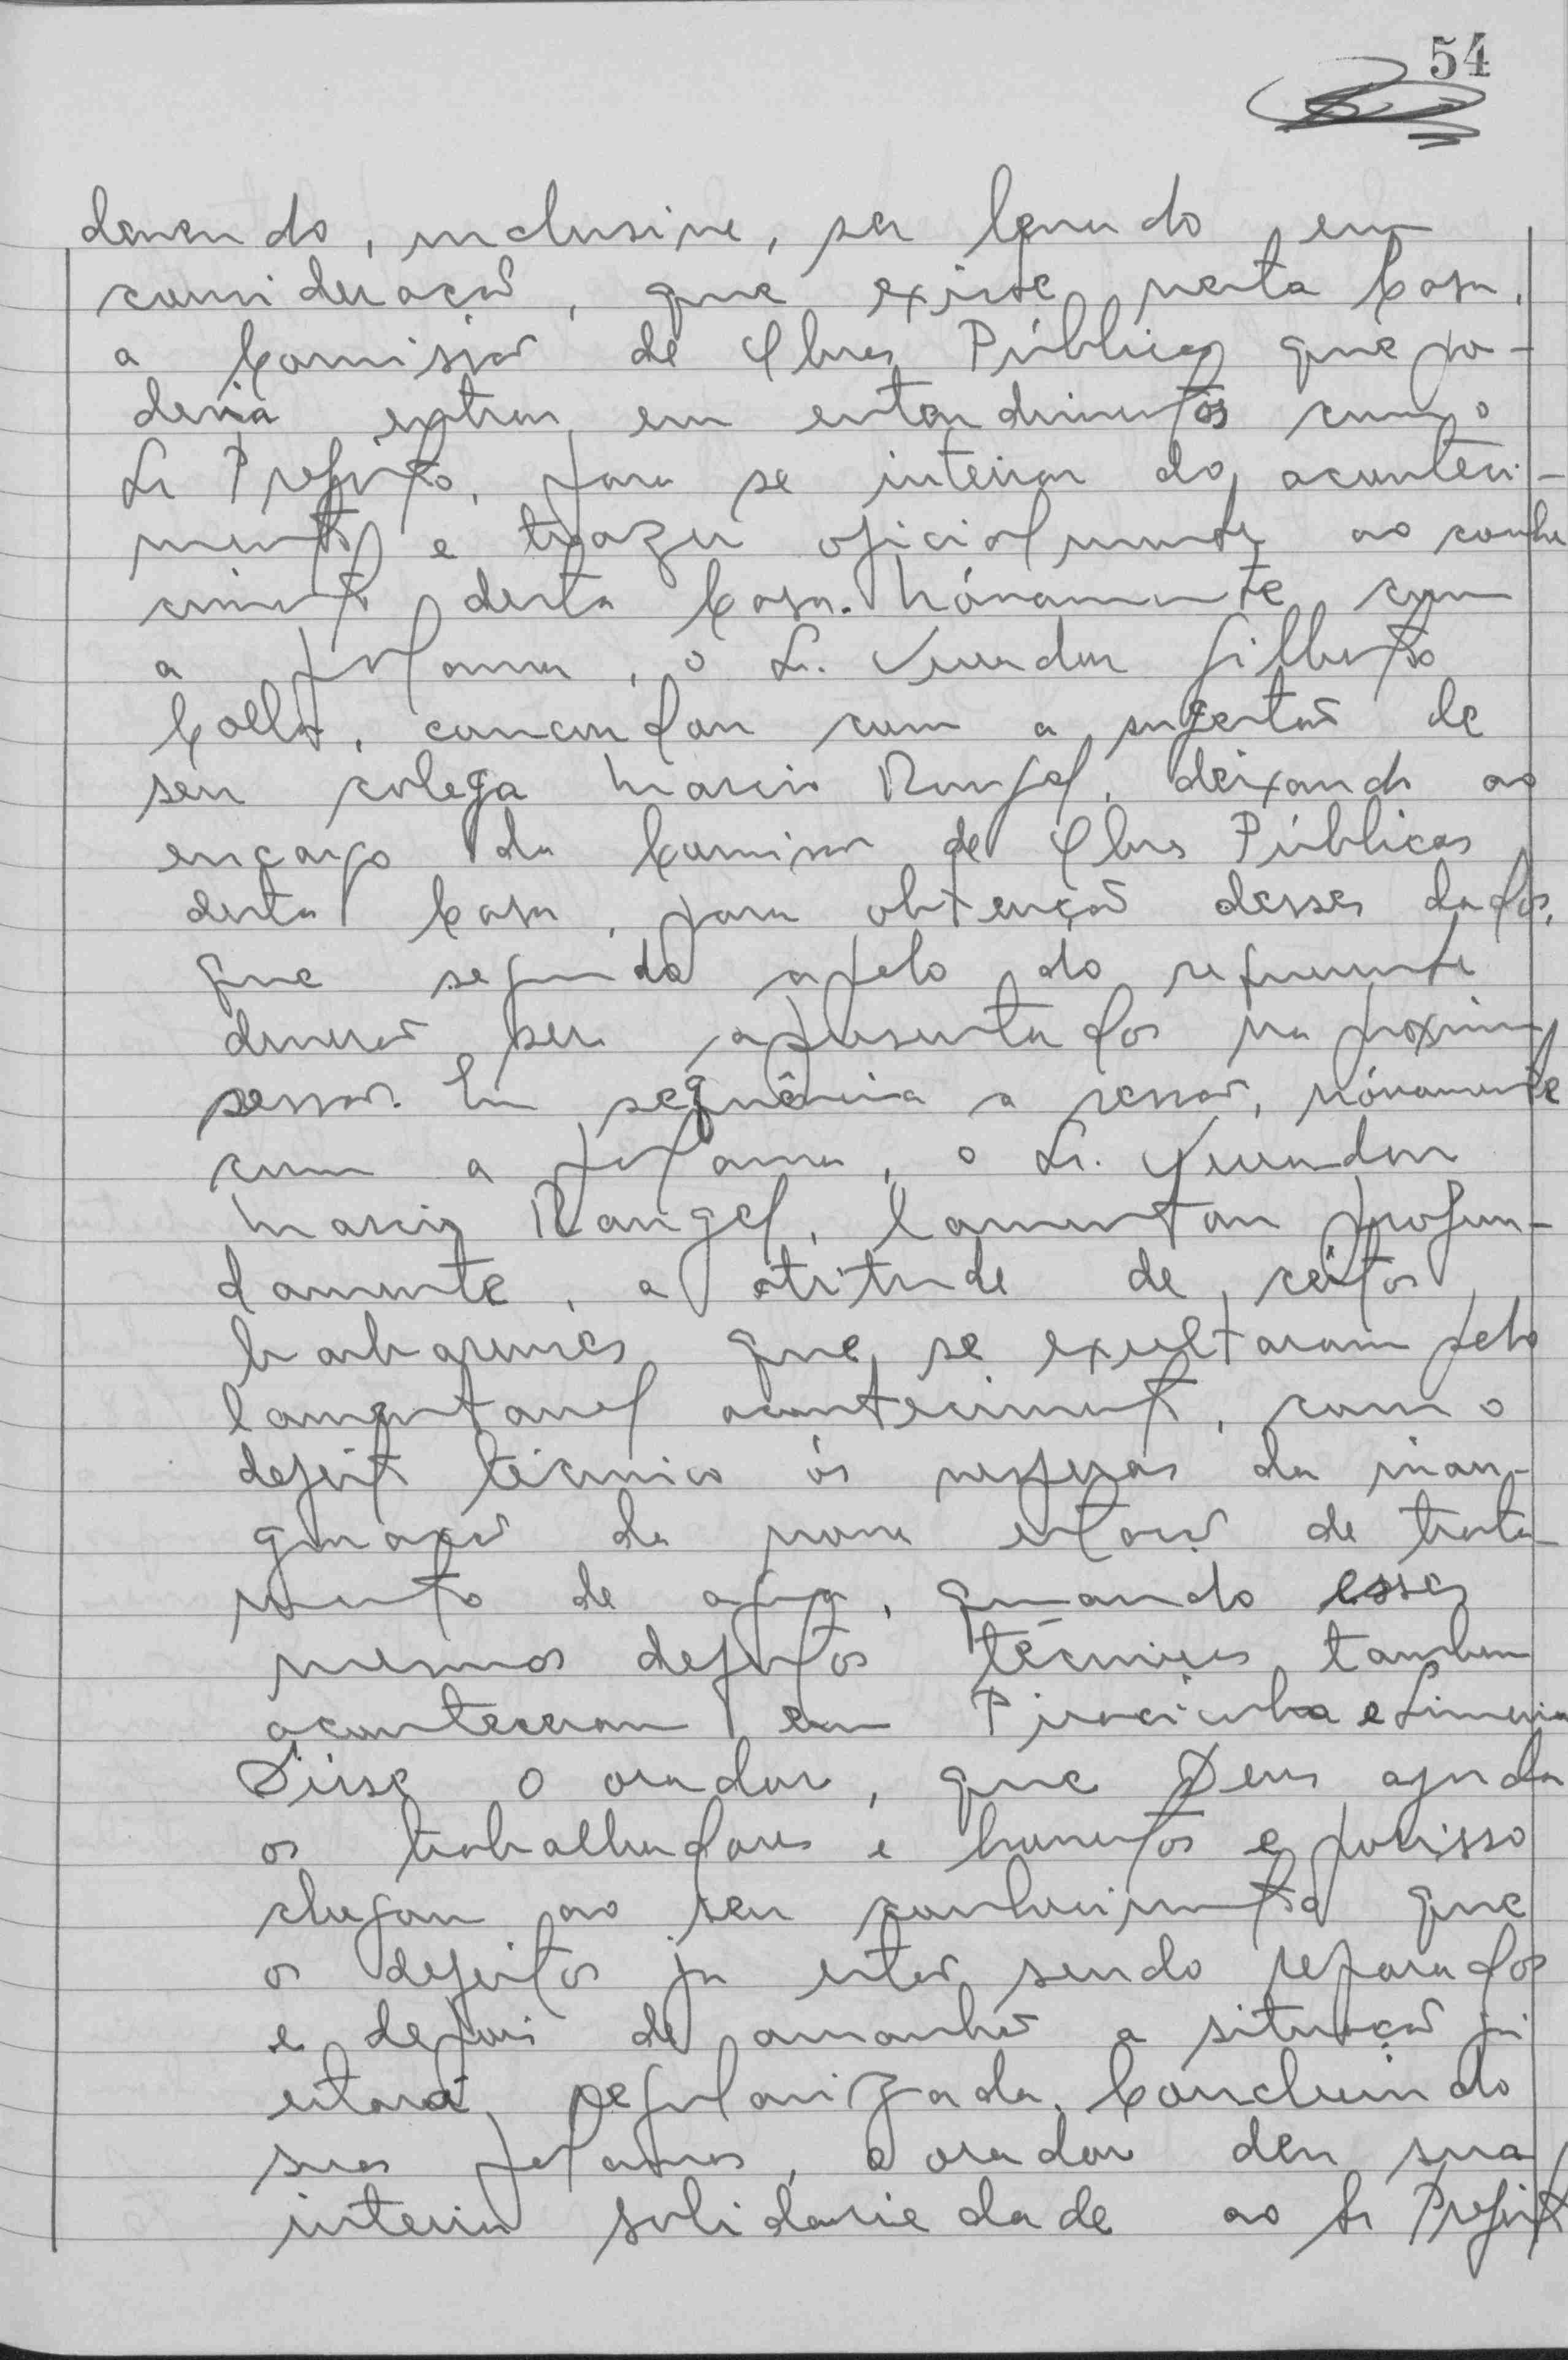 54
devendo, inclusive, ser levado em
consideração, que existe nesta Casa,
a Comissão de Obras Públicas que po-
deria entrar em entendimentos com o
Sr Prefeito, para se inteirar do aconteci-
mento e trazer oficialmente ao conhe
cimento desta Casa. Nóvamente com
a palavra, o Sr. Vereador Gilberto
Colla, concordou com a sugestão de
seu colega Marcio Rangel, deixando ao
encargo da Comissão de Obras Públicas
desta Casa, para obtenção desses dados,
que segundo apelo do requerente
deverão ser apresentados na proxima
sessão. Em seqüência a sessão, nóvamente
com a palavra, o Sr. Vereador
Marcio Rangel, lamentou profun-
damente, a atitude de certos
barbarenses que se exultaram pelo
lamentavel acontecimento, com o
defeito técnico ás vesperas da inau-
guração da nova estação de trata-
mento de agua, quando esses
mesmos defeitos técnicos tambem
aconteceram em Piracicaba e Limeira
Disse o orador, que Deus ajuda
os trabalhadores e honestos e porisso
chegou ao seu conhecimento que
os defeitos ja estão sendo reparados
e depois de amanhã a situação já
estará regularizada. Concluindo
suas palavras, o orador deu sua
inteira solidariedade ao Sr Prefeito